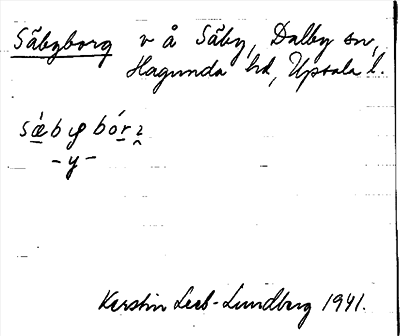 Säbyborg v å Säby, Dalby sn,
Hagunda hd, Upsala l.
sæ̀bybórꞇ
-y-
Kerstin Leeb-Lundberg 1941.